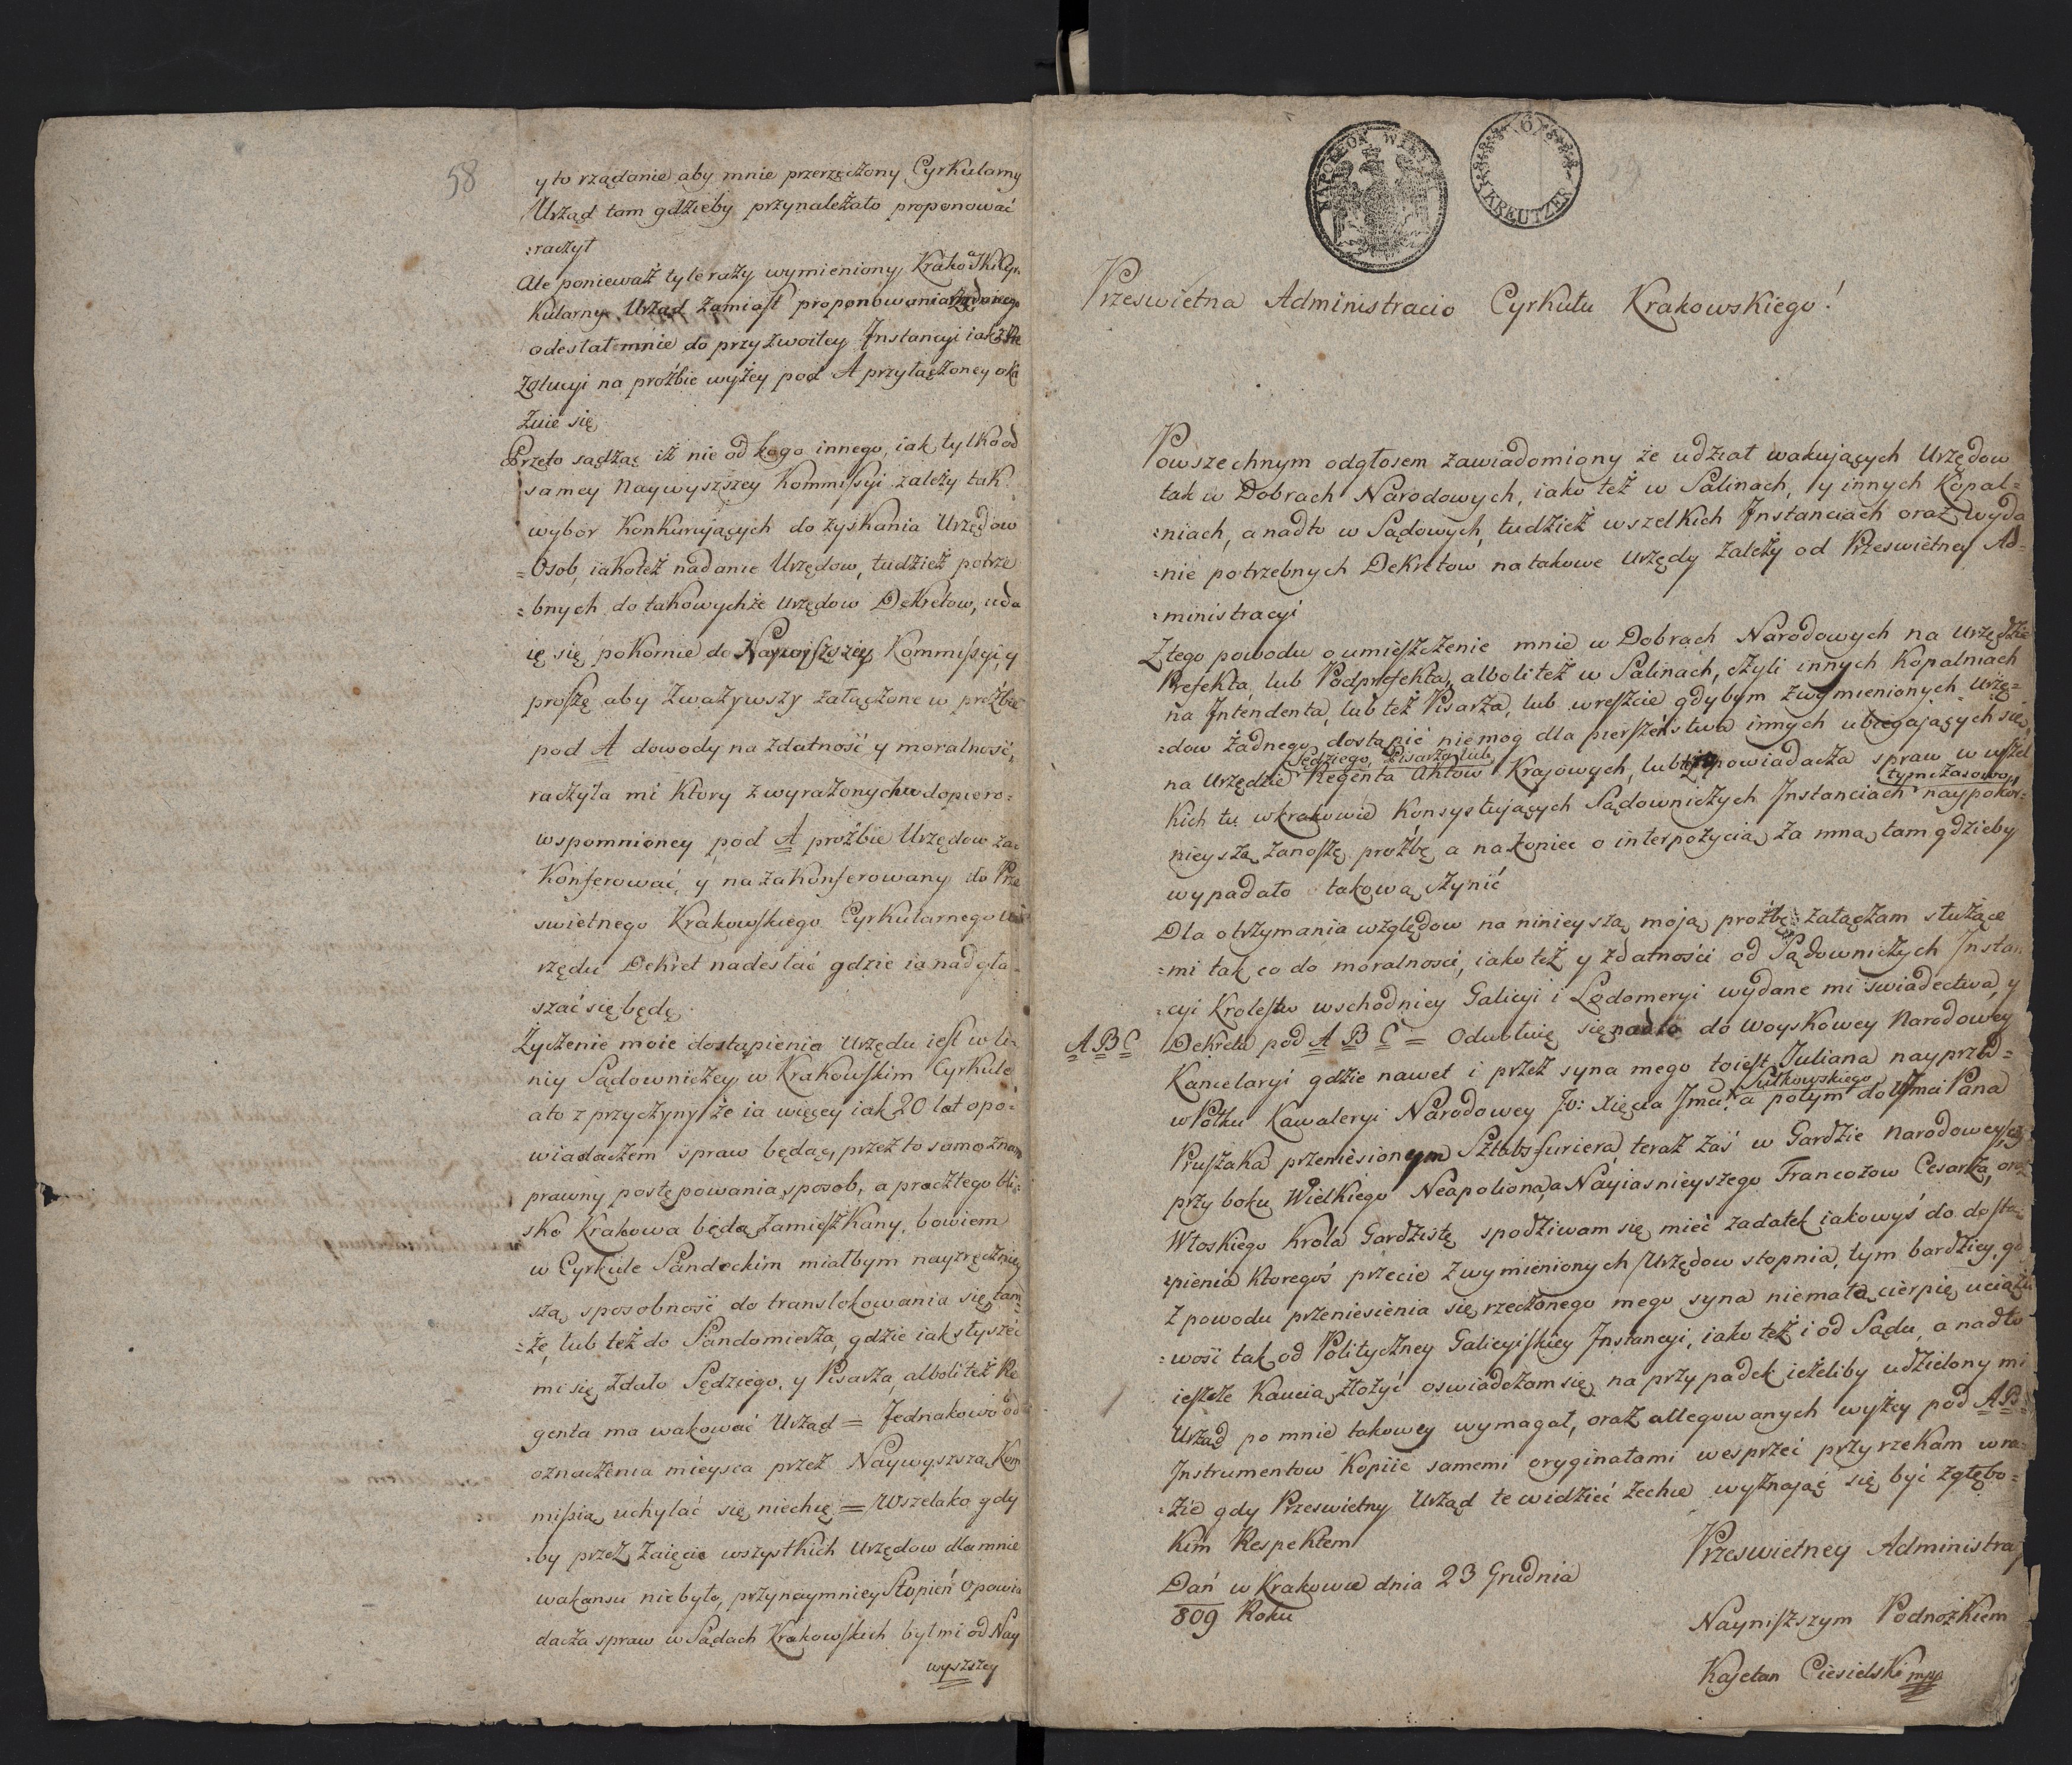 58
y to rządanie aby mnie przerzęczony Cyrkularny
Urząd tam gdzieby przynależało proponować
:raczył
Ale ponieważ tyle razy wymieniony Krakowski Cyr-
kularny Urząd zamiast proponowania żądanego
odesłał mnie do przyzwoitey Instancyi iak z Re
zolucyi na proźbie wyżey pod A przyłączoney oka
zuie się
Przeto sądząc iż nie od kogo innego, iak tylko od
samey Naywyszszey Kommissyi zależy tak
wybor konkurujących do zyskania Urzędow
=Osob, iakoteż nadanie Urzędow, tudzież potrze
=bnych do takowychże Urzędow Dekretow, uda
ię się pokornie do Naywyszszey Kommissyi, y
proszę aby zważywszy załączone w proźbie
pod A dowody na zdatność y moralność,
raczyła mi ktory z wyrażonych w dopiero=
wspomnioney pod A proźbie Urzędow za-
konferować, y na zakonferowany do Prze
swietnego Krakowskiego Cyrkularnego U
rzędu Dekret nadesłać gdzie ia nadgła-
szać się będę.
Życzenie moie dostąpienia Urzędu iest w li-
nii Sądowniczey w Krakowskim Cyrkule
a to z przyczyny że ia więcey iak 20 lat opo-
wiadaczem spraw będąc, przez to samo znam
prawny postępowania sposob, a procz tego bli-
sko Krakowa będąc zamieszkany, bowiem
w Cyrkule Sandeckim miałbym nayzręczniey
szą sposobność do translokowania się tam
:że, lub też do Sandomierza, gdzie iak słyszeć
mi się zdało Sędziego, y Pisarza, alboli też Re
genta ma wakować Urząd = Jednakowo od
oznaczenia mieysca przez Naywyszszą Kom
missią uchylać się niechcę = Wszelako gdy
:by przez zaięcie wszystkich Urzędow dla mnie
wakansu nie było, przynaymniey Stopień Opowia
dacza spraw w Sądach Krakowskich był mi od Nay
wyszszey
NAPOLEON WIELKI
6
KREUTZER
59
Przeswietna Administracio Cyrkułu Krakowskiego!
Powszechnym odgłosem zawiadomiony że udział wakujących Urzędow
tak w Dobrach Narodowych, iako też w Salinach, y innych Kopal=
:niach, a nadto w Sądowych, tudzież wszelkich Instanciach oraz wyda
:nie potrzebnych Dekretow na takowe Urzędy zależy od Przeswietney Ad=
:ministracyi
Z tego powodu o umieszczenie mnie w Dobrach Narodowych na Urzędzie
Prefekta, lub Podprefekta, alboli też w Salinach, czyli innych Kopalniach
na Intendenta, lub też Pisarza, lub wreszcie gdybym z wymienionych Urzę=
:dow żadnego dostąpić niemog dla pierszeństwa innych ubiegających się,
Sędziego, Pisarza, lub
na Urzędzie Regenta Aktow Krajowych, lub też opowiadacza spraw w wszel
tymczasowo
kich tu w Krakowie Konsystujących Sądowniczych Instanciach naypokor=
nieyszą zanoszę proźbę a nakoniec o interpozycią za mną tam gdzieby
wypadało takową czynić
Dla otrzymania względow na ninieyszą moją proźbę załączam służące
=mi tak co do moralności, iako też y zdatności od Sądowniczych Instan
:cyi Krolestw wschodniey Galicyi i Lodomeryi wydane mi świadectwa, y
A B C
Dekreta pod A B C = Odwołuię się nadto do Woyskowey Narodowey
Kancelaryi gdzie nawet i przez syna mego toiest Juliana nayprzod=
Sułkowskiego
w Połku Kawaleryi Narodowey Jo: Xięcia Jmci, a potym do Jmci Pana
Pruszaka przeniesionym Sztabsfuriera, teraz zaś w Gardzie Narodowey
przy boku Wielkiego Neapoliona, a Nayiasnieyszego Francozow Cesarza, oraz
Włoskiego Krola Gardzistę spodziwam się mieć zadatek iakowyś do dostą-
:pienia ktoregoś przecie z wymienionych Urzędow stopnia, tym bardziey, gd
z powodu przeniesienia się rzeczonego mego syna niemałą cierpię uciążli
=wość tak od Polityczney Galicyiskiey Instancyi, iako też i od Sądu, a nadto
ieszcze Kaucią złożyć oswiadczam się na przypadek ieżeliby udzielony mi
Urząd po mnie takowey wymagał, oraz allegowanych wyżey pod A B
Instrumentow kopiie samemi oryginałami wesprzeć przyrzekam w ra-
:zie gdy Przeswietny Urząd te widzieć zechce wyznając się być z głębo=
kim Respektem
Przeswietney Administra
Dań w Krakowie dnia 23 Grudnia
809 Roku
Nayniższym Podnożkiem
Kajetan Ciesielski mpp